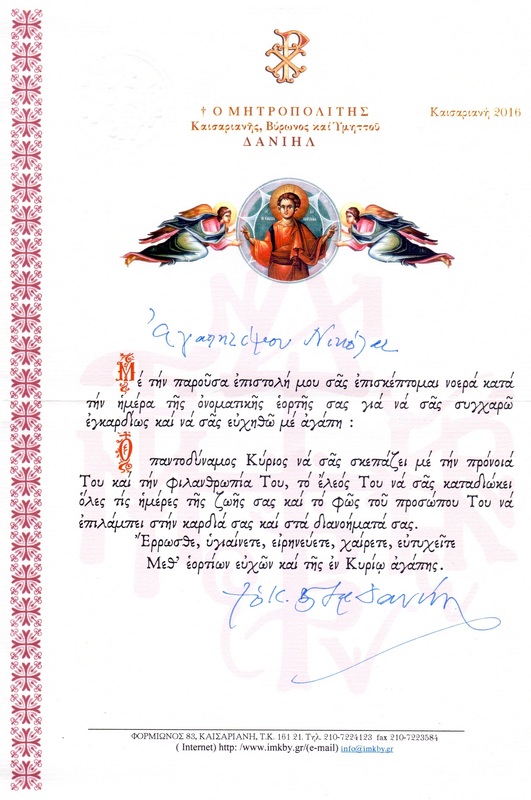 † Ο ΜΗΤΡΟΠΟΛΙΤΗΣ
Καισαριανῆς, Βύρωνος καί Ὑμηττοῦ
ΔΑΝΙΗΛ
Καισαριανή 2016
Ἀγαπητέ μου Νικόλαε
Μέ τήν παροῦσα ἐπιστολή μου σᾶς ἐπισκέπτομαι νοερά κατά
τήν ἡμέρα τῆς ὀνοματικῆς ἑορτῆς σας γιά νά σᾶς συγχαρῶ
ἐγκαρδίως καί νά σᾶς εὐχηθῶ μέ ἀγάπη :
Ὁ παντοδύναμος Κύριος νά σᾶς σκεπάζει μέ τήν πρόνοιά
Του καί τήν φιλανθρωπία Του, τό ἔλεός Του νά σᾶς καταδιώκει
ὅλες τίς ἡμέρες τῆς ζωῆς σας καί τό φῶς τοῦ προσώπου Του νά
ἐπιλάμπει στήν καρδιά σας καί στά διανοήματά σας.
Ἔρρωσθε, ὑγιαίνετε, εἰρηνεύετε, χαίρετε, εὐτυχεῖτε
Μεθ’ ἑορτίων εὐχῶν καί τῆς ἐν Κυρίῳ ἀγάπης.
ΦΟΡΜΙΩΝΟΣ 83, ΚΑΙΣΑΡΙΑΝΗ, Τ.Κ. 161 21. Τηλ. 210-7224123 fax 210-7223584
( Internet) http: /www.imkby.gr/(e-mail) info@imkby.gr